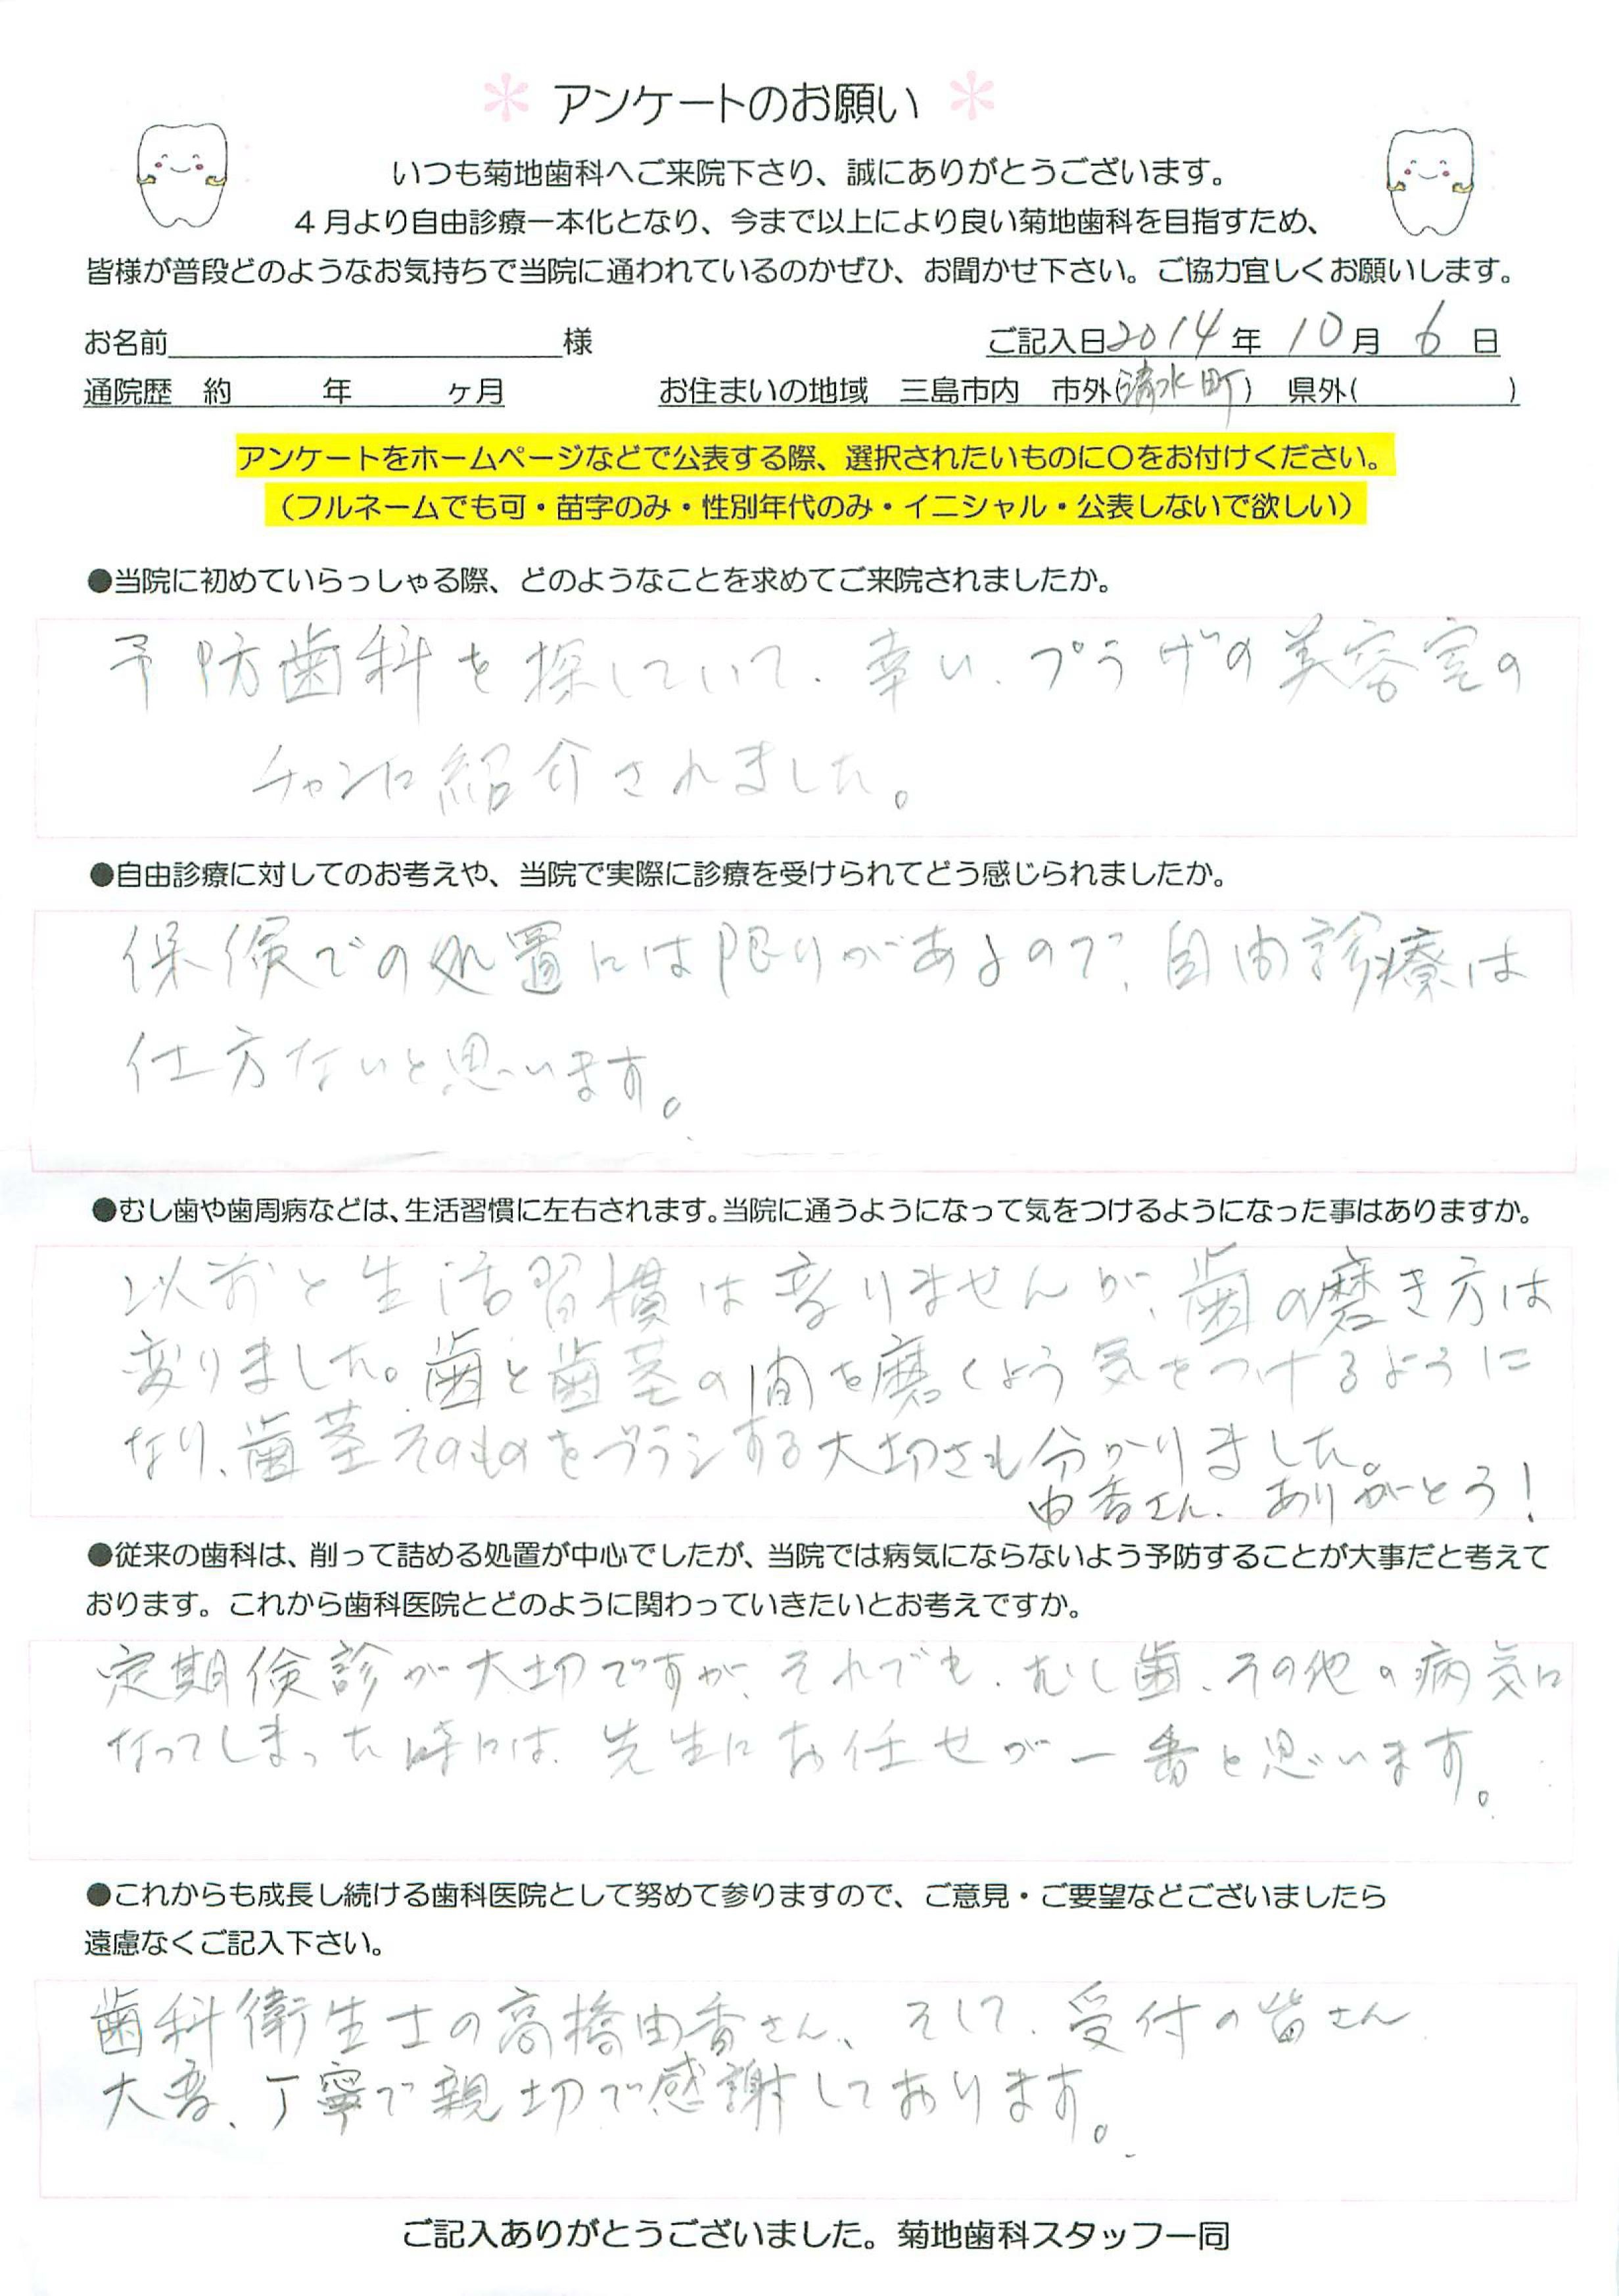 アンケートのお願い
いつも菊地歯科へご来院下さり、誠にありがとうございます。
4月より自由診療一本化となり、今まで以上により良い菊地歯科を目指すため、
皆様が普段どのようなお気持ちで当院に通われているのかぜひ、お聞かせ下さい。ご協力宜しくお願いします。
お名前 様 ご記入日2014年 10月 6日
通院歴 約 年 ヶ月 お住まいの地域 三島市内 市外(清水町) 県外( )
アンケートをホームページなどで公表する際、選択されたいものに〇をお付けください。
（フルネームでも可・苗字のみ・性別年代のみ・イニシャル・公表しないで欲しい）
●当院に初めていらっしゃる際、どのようなことを求めてご来院されましたか。
予防歯科を探していて、幸い、プラザの美容室の
チャンに紹介されました。
●自由診療に対してのお考えや、当院で実際に診療を受けられてどう感じられましたか。
保険での処置には限りがあるので、自由診療は
仕方ないと思います。
●むし歯や歯周病などは、生活習慣に左右されます。当院に通うようになって気をつけるようになった事はありますか。
以前と生活習慣は変りませんが、歯の磨き方は
変りました。歯と歯茎の間を磨くよう気をつけるように
なり、歯茎そのものをブラシする大切さも分かりました。
由香さん、ありがとう！
●従来の歯科は、削って詰める処置が中心でしたが、当院では病気にならないよう予防することが大事だと考えて
おります。これから歯科医院とどのように関わっていきたいとお考えですか。
定期検診が大切ですが、それでも、むし歯、その他の病気に
なってしまった時には、先生にお任せが一番と思います。
●これからも成長し続ける歯科医院として努めて参りますので、ご意見・ご要望などございましたら
遠慮なくご記入下さい。
歯科衛生士の高橋由香さん、そして、受付の皆さん
大変、丁寧で親切で感謝しております。
ご記入ありがとうございました。菊地歯科スタッフ一同